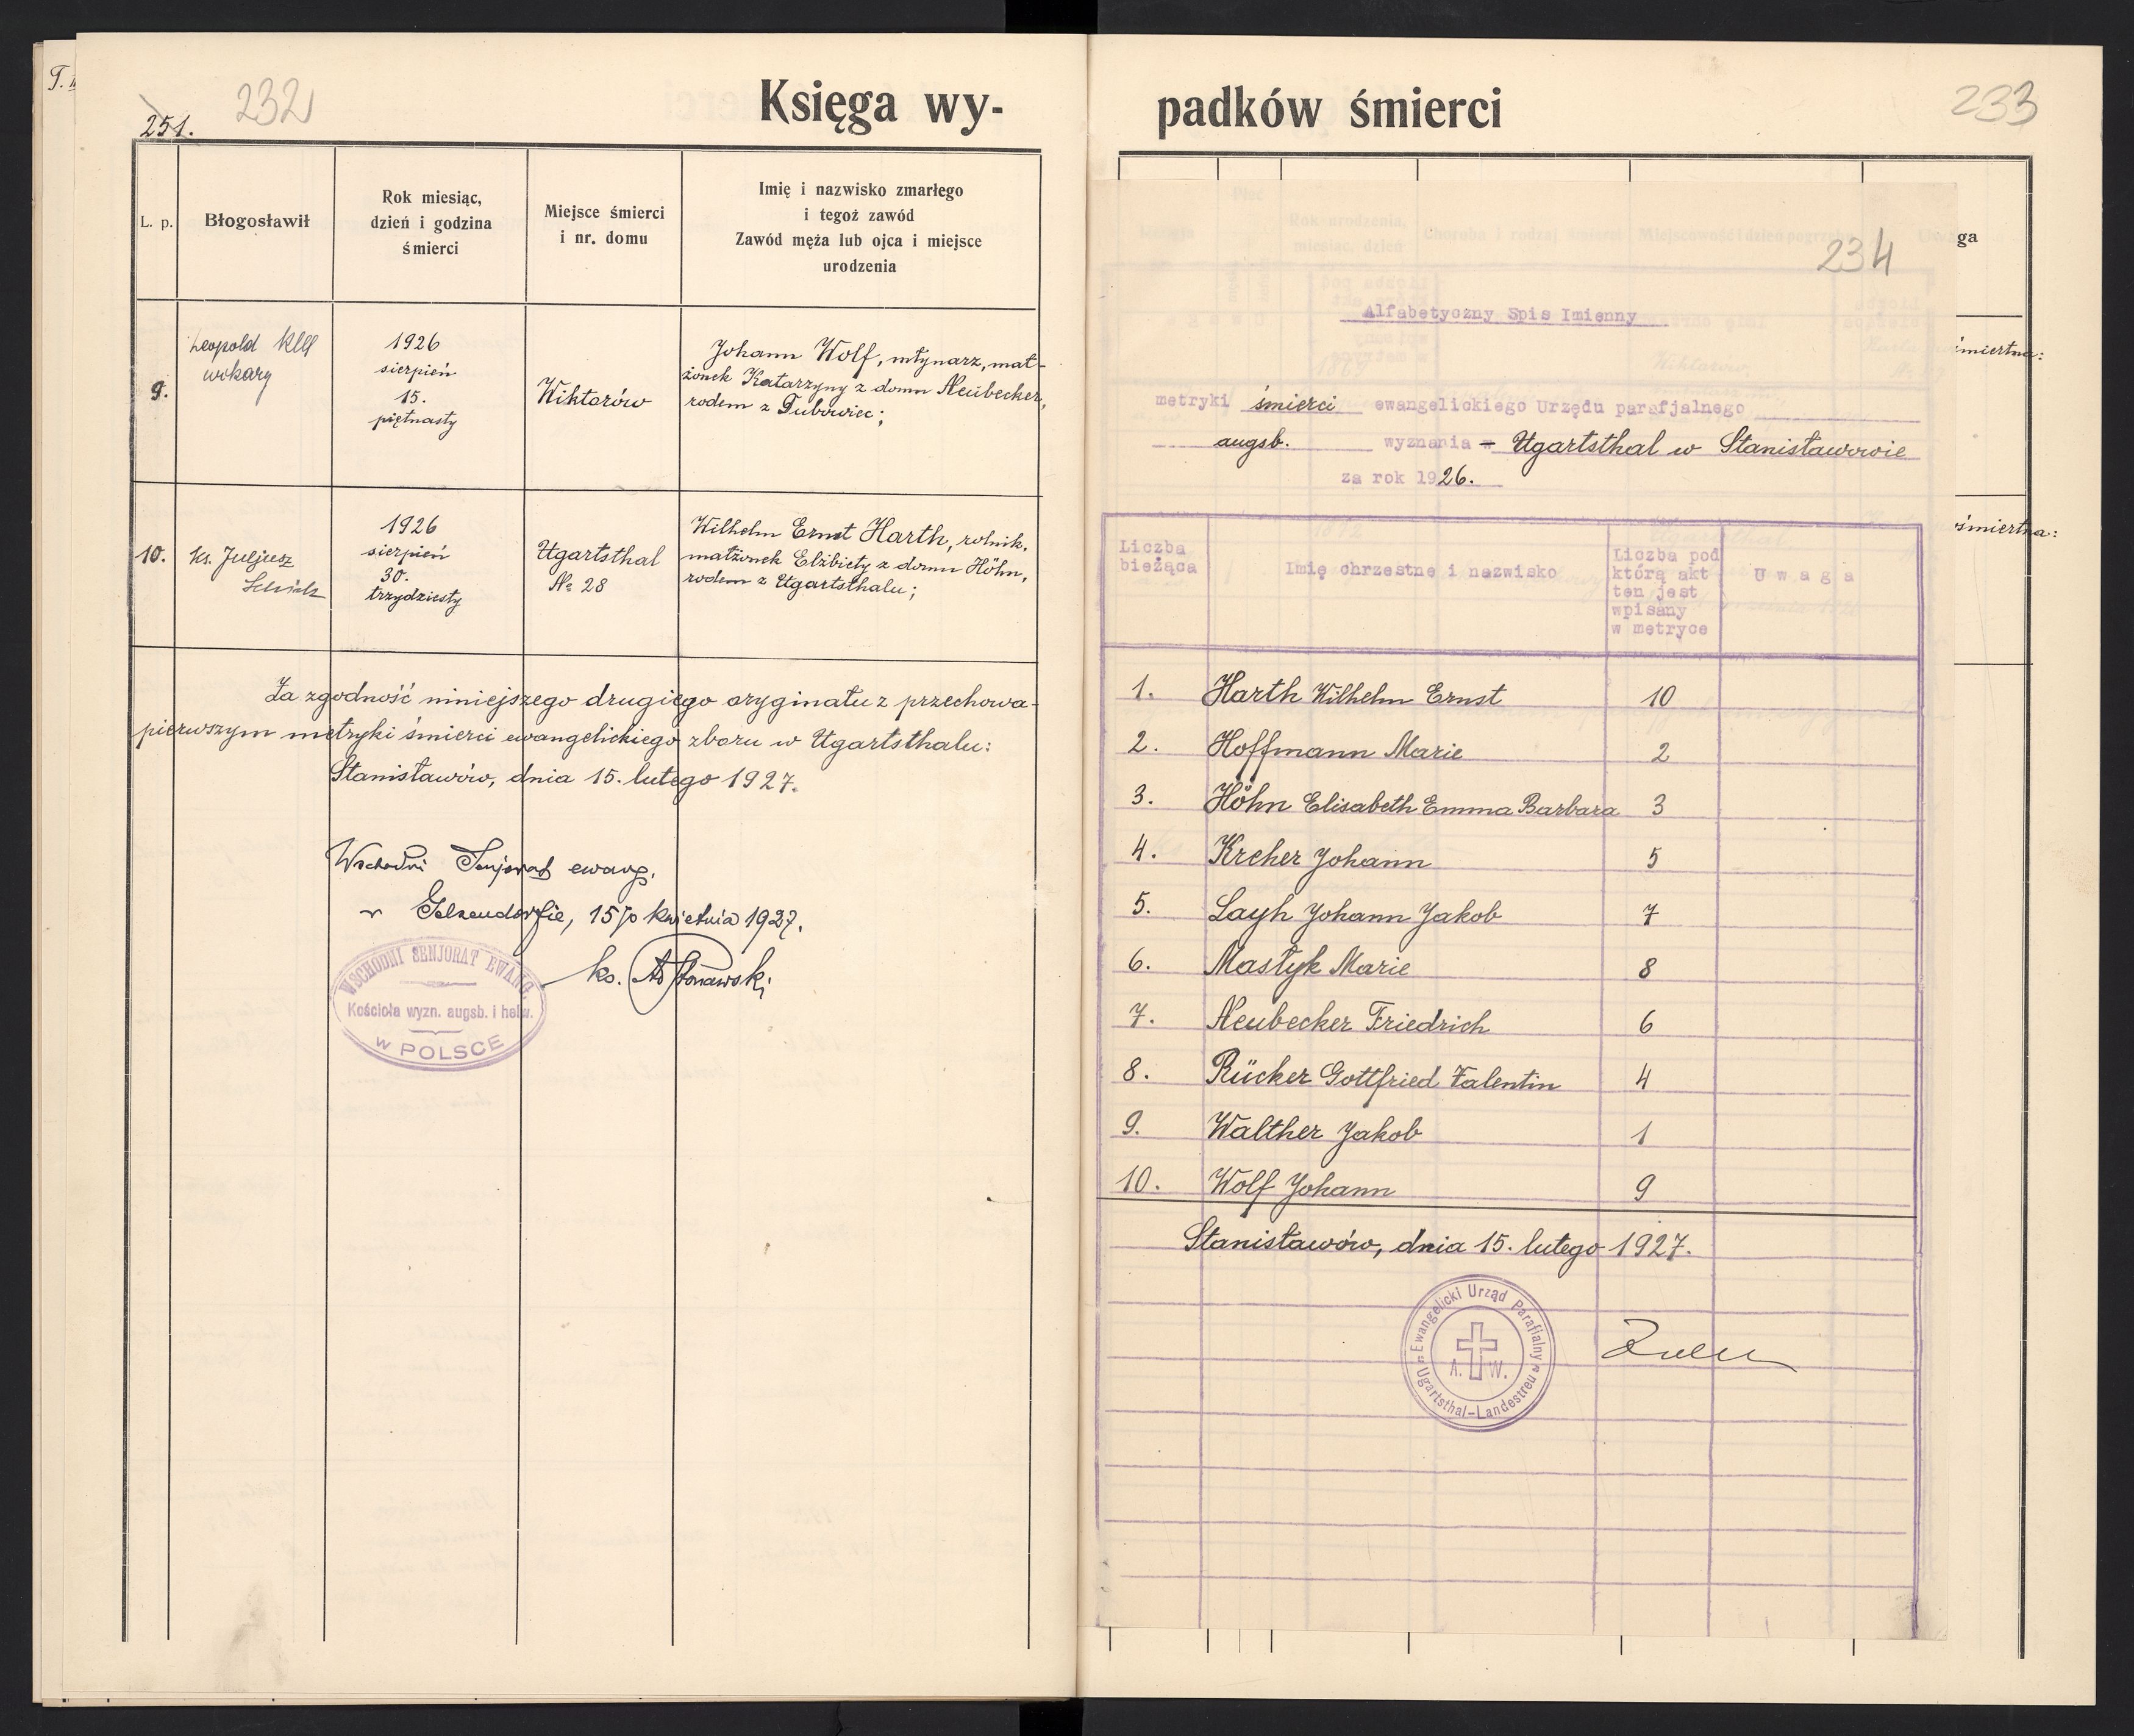 232
251.
Księga wy-
L. p.
Błogosławił
Rok miesiąc,
dzień i godzina
śmierci
Miejsce śmierci
i nr. domu
Imię i nazwisko zmarłego
i tegoż zawód
Zawód męża lub ojca i miejsce
urodzenia
9.
Leopold
wikary
1926
sierpień
15.
piętnasty
Wiktorów
Johann Wolf, młynarz, mał-
żonek Katarzyny z domu Neubecker,
rodem z
10.
ks. Juljusz
1926
sierpień
30.
trzydziesty
Ugartsthal
№ 28
Wilhelm Ernst Harth, rolnik,
małżonek Elżbiety z domu Höhn,
rodem z Ugartsthalu;
Za zgodność niniejszego drugiego oryginału z przechowa-
pierwszym metryki śmierci ewangelickiego zboru w Ugartsthalu:
Stanisławów, dnia 15. lutego 1927.
Wschodni Senjorat ewang.
w Gelsendorfie, 15go kwietnia 1927.
ks.
WSCHODNI SENJORAT EWANG.
Kościoła wyzn. augsb. i helw.
w POLSCE
padków śmierci
233
ga
234
Alfabetyczny Spis Imienny
metryki śmierci ewangelickiego Urzędu parafjalnego
augsb. wyznania - Ugartsthal w Stanisławowie
za rok 1926.
śmiertna:
śmiertna:
Liczba
bieżąca
Imię chrzestne i nazwisko
Liczba pod
którą akt
ten jest
wpisany
w metryce
Uwaga
1. Harth Wilhelm Ernst 10
2. Hoffmann Marie 2
3. Höhn Elisabeth Emma Barbara 3
4. Kreher Johann 5
5. Layh Johann Jakob 7
6. Mastyk Marie 8
7. Neubecker Friedrich 6
8. Rücker Gottfried Valentin 4
9. Walther Jakob 1
10. Wolf Johann 9
Stanisławów, dnia 15. lutego 1927.
Ewangelicki Urząd Parafialny
A. W.
Ugartsthal-Landestreu